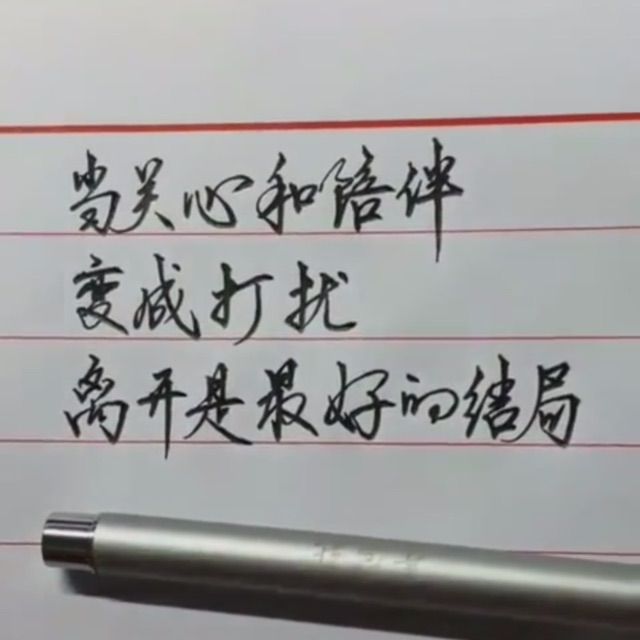 当关心和陪伴
变成打扰
离开是最好的结局